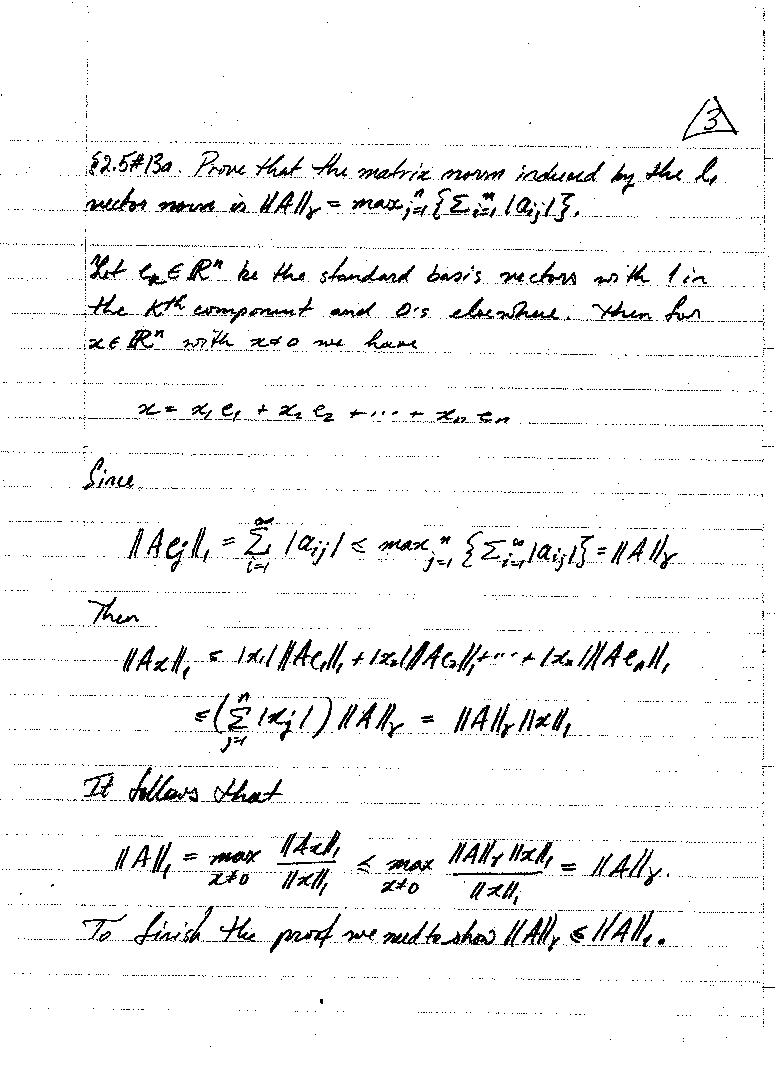 3
§2.5#13a. Prove that the matrix norm induced by the l₁
vector norm is ||A||_γ = max_{j=1}^n {Σ_{i=1}^m |a_ij|}.
Let e_k ∈ ℝⁿ be the standard basis vectors with 1 in
the kth component and 0's elsewhere. Then for
x ∈ ℝⁿ with x≠0 we have
x = x₁e₁ + x₂e₂ + ··· + x_n e_n
Since
||Ae_j||₁ = Σ_{i=1}^m |a_ij| ≤ max_{j=1}^n {Σ_{i=1}^m |a_ij|} = ||A||_γ
Then
||Ax||₁ ≤ |x₁| ||Ae₁||₁ + |x₂| ||Ae₂||₁ + ··· + |x_n| ||Ae_n||₁
≤ (Σ_{j=1}^n |x_j|) ||A||_γ = ||A||_γ ||x||₁
It follows that
||A||₁ = max_{x≠0} ||Ax||₁ / ||x||₁ ≤ max_{x≠0} ||A||_γ ||x||₁ / ||x||₁ = ||A||_γ.
To finish the proof we need to show ||A||_γ ≤ ||A||₁.